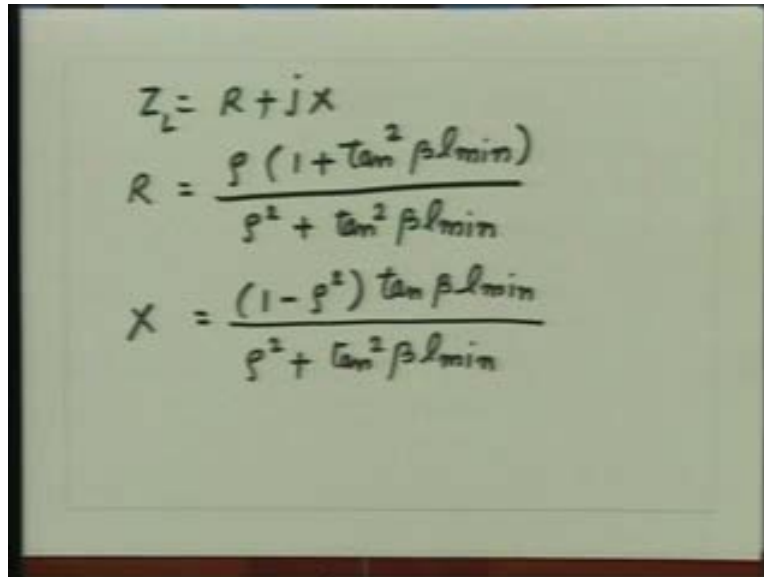 Z_L = R + jX
R = ρ (1 + tan² βlmin) / ρ² + tan² βlmin
X = (1 - ρ²) tan βlmin / ρ² + tan² βlmin